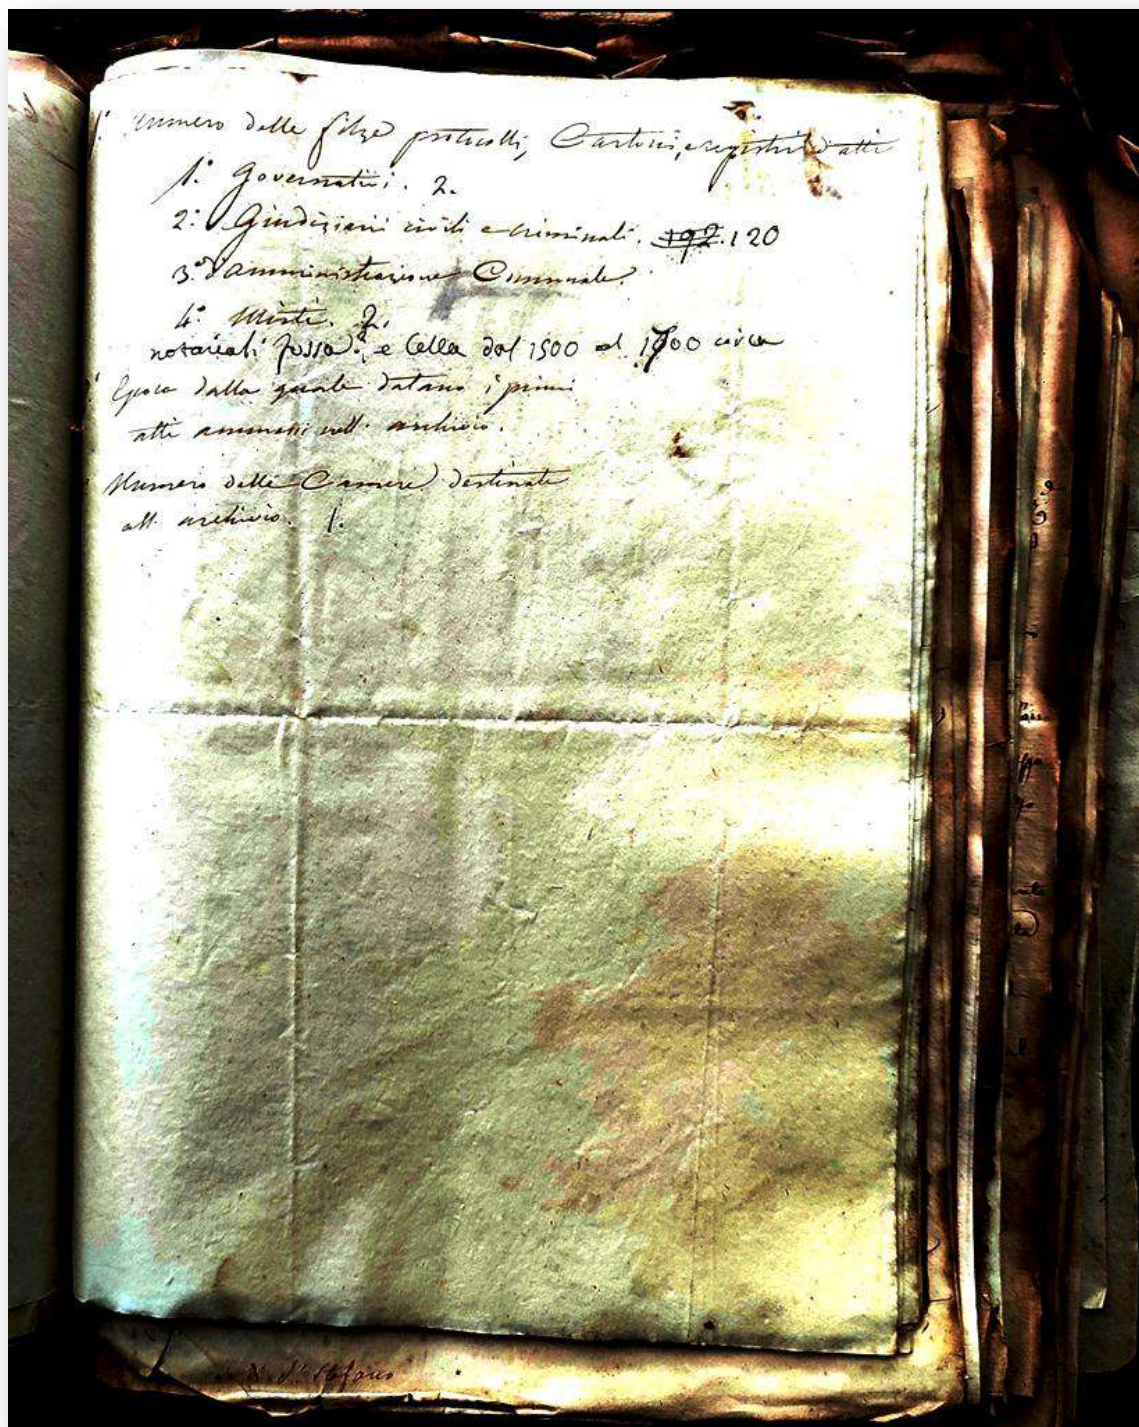 Numero delle filze protocolli, Cartoni, e registri d'atti
1.° Governativi. 2.
2.° Giudiziari civili e criminali. 192. 120
3.° d'amministrazione Comunale.
4.° Misti. 2.
notariali Fossa, e Cella dal 1500 al 1700 circa
Epoca dalla quale datano i primi
atti ammessi nell' archivio.
Numero delle Camere destinate
all' archivio. 1.
di S. Stefano